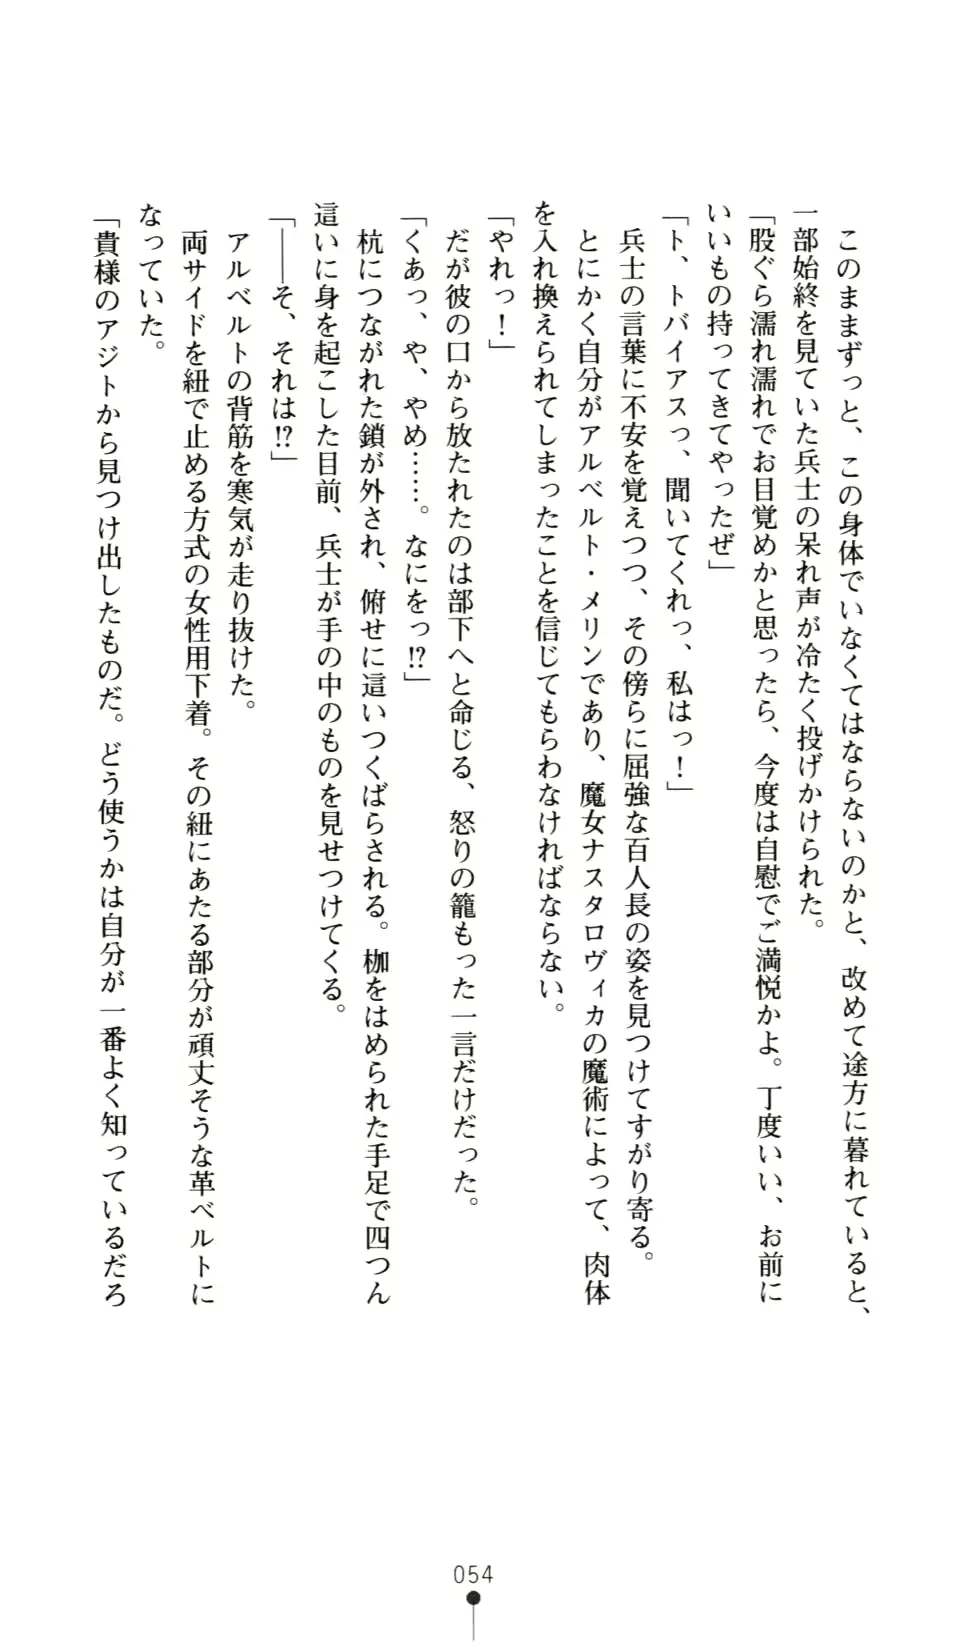 このままずっと、この身体でいなくてはならないのかと、改めて途方に暮れていると、
一部始終を見ていた兵士の呆れ声が冷たく投げかけられた。
「股ぐら濡れ濡れでお目覚めかと思ったら、今度は自慰でご満悦かよ。丁度いい、お前に
いいもの持ってきてやったぜ」
「ト、トバイアスっ、聞いてくれっ、私はっ！」
兵士の言葉に不安を覚えつつ、その傍らに屈強な百人長の姿を見つけてすがり寄る。
とにかく自分がアルベルト・メリンであり、魔女ナスタロヴィカの魔術によって、肉体
を入れ換えられてしまったことを信じてもらわなければならない。
「やれっ！」
だが彼の口から放たれたのは部下へと命じる、怒りの籠もった一言だけだった。
「くあっ、や、やめ……。なにをっ!?」
杭につながれた鎖が外され、俯せに這いつくばらされる。枷をはめられた手足で四つん
這いに身を起こした目前、兵士が手の中のものを見せつけてくる。
「――そ、それは!?」
アルベルトの背筋を寒気が走り抜けた。
両サイドを紐で止める方式の女性用下着。その紐にあたる部分が頑丈そうな革ベルトに
なっていた。
「貴様のアジトから見つけ出したものだ。どう使うかは自分が一番よく知っているだろ
054